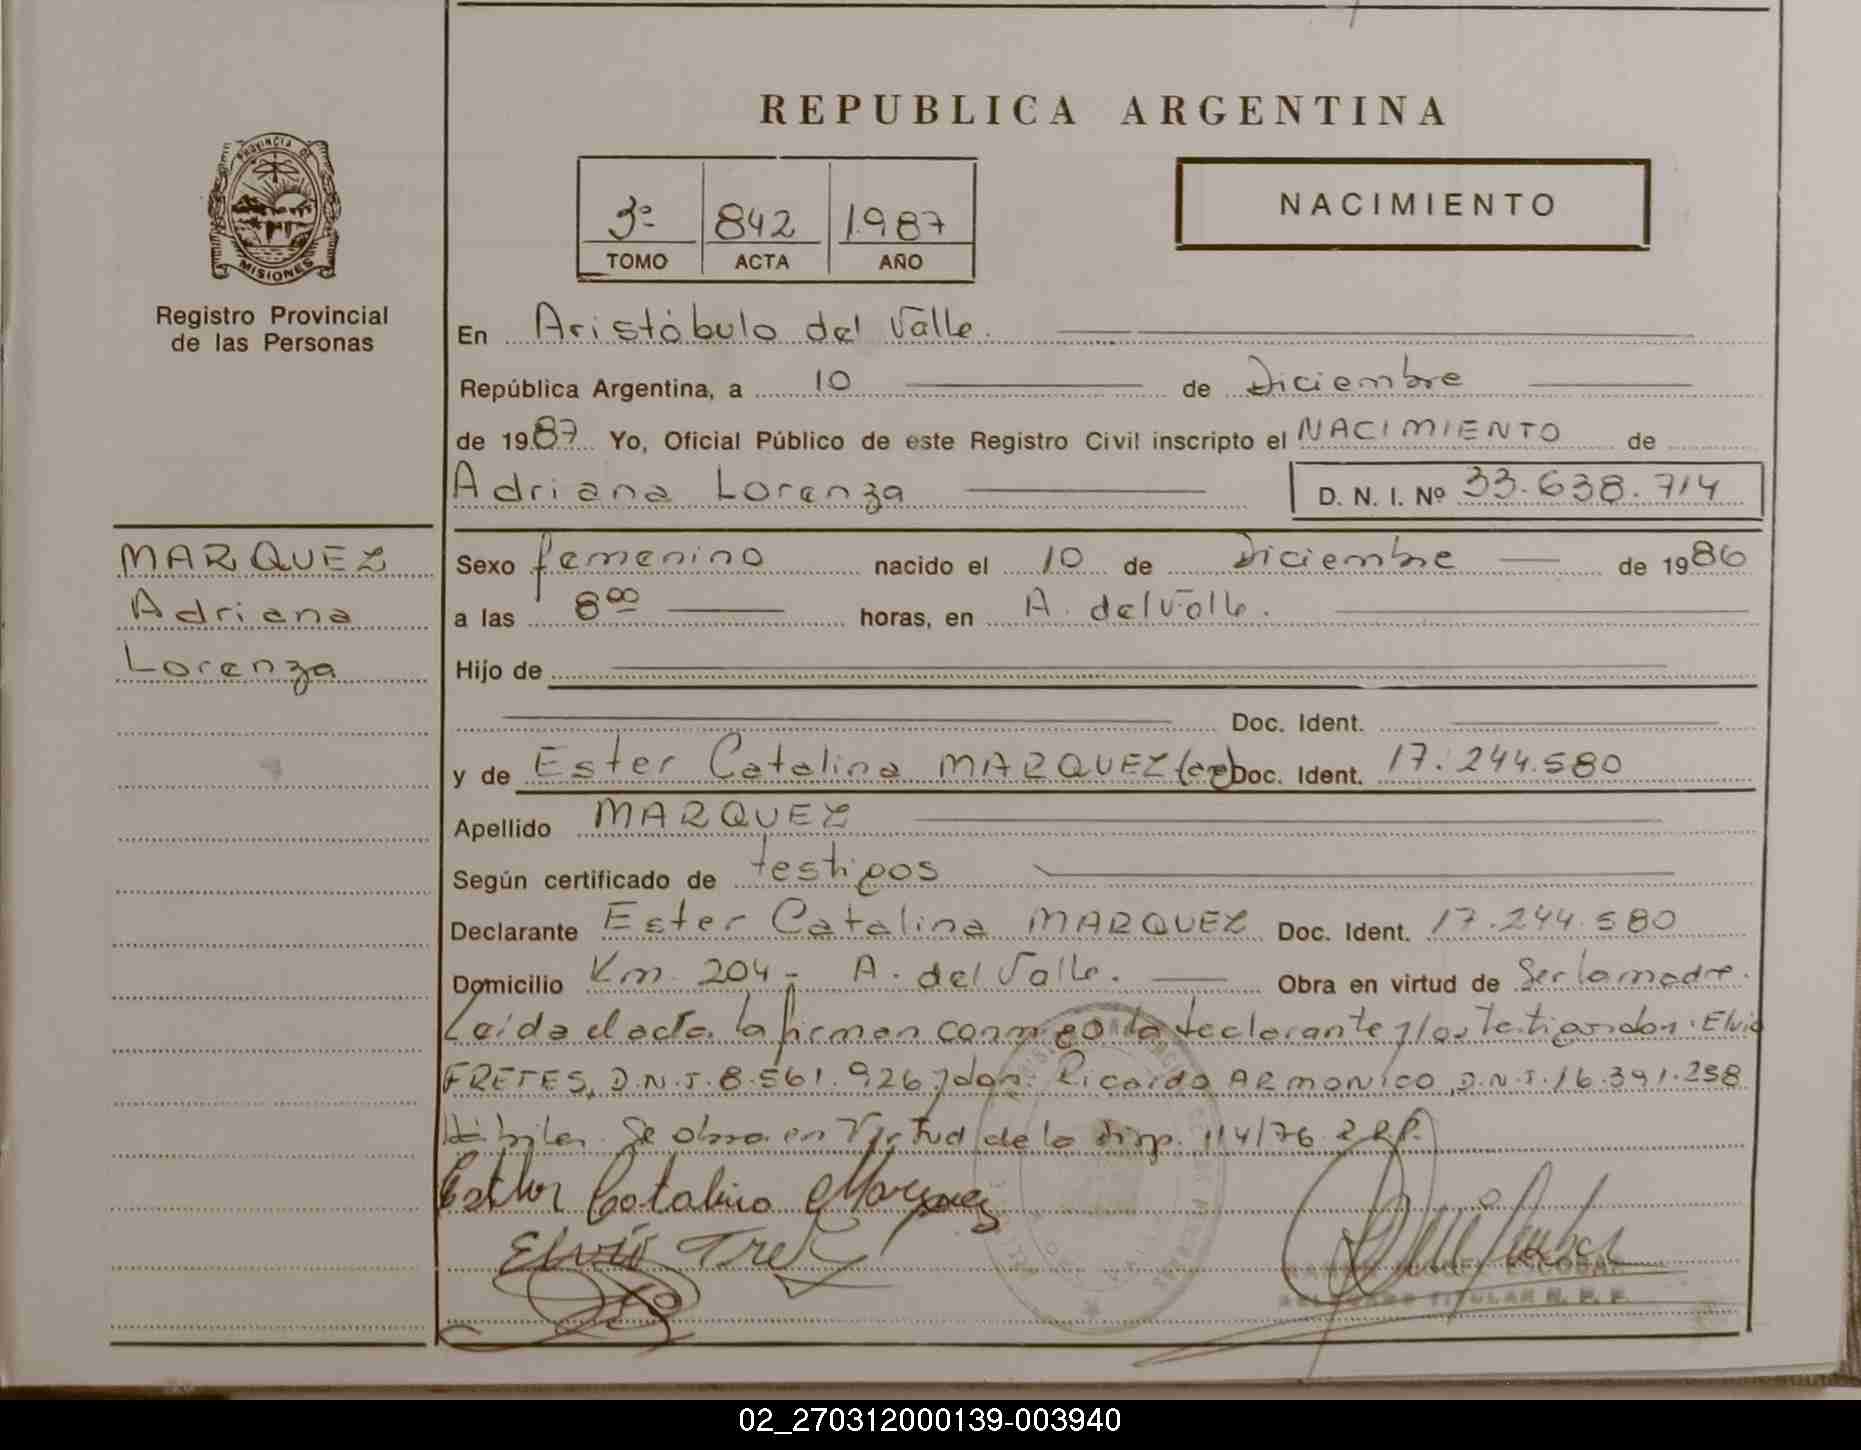 REPUBLICA ARGENTINA
PROVINCIA DE
MISIONES
Registro Provincial
de las Personas
3º 842 1987
TOMO ACTA AÑO
NACIMIENTO
En Aristóbulo del Valle.
República Argentina, a 10 de Diciembre
de 1987 Yo, Oficial Público de este Registro Civil inscripto el NACIMIENTO de
Adriana Lorenza D. N. I. Nº 33.638.714
MARQUEZ
Adriana
Lorenza
Sexo femenino nacido el 10 de Diciembre de 1986
a las 8 00 horas, en A. del Valle.
Hijo de
Doc. Ident.
y de Ester Catalina MARQUEZ Doc. Ident. 17.244.580
Apellido MARQUEZ
Según certificado de testigos
Declarante Ester Catalina MARQUEZ Doc. Ident. 17.244.580
Domicilio Km. 204- A. del Valle. Obra en virtud de Ser la madre.
Leída el acta la firman conmigo la declarante y los testigos don: Elvio
FRETES, D.N.I. 8.561.926 y don: Ricardo ARMONICO, D.N.I. 16.391.258
Hábiles. Se obra en Virtud de la Disp. 114/76
Esther Catalina Marquez
Elvio
02_270312000139-003940